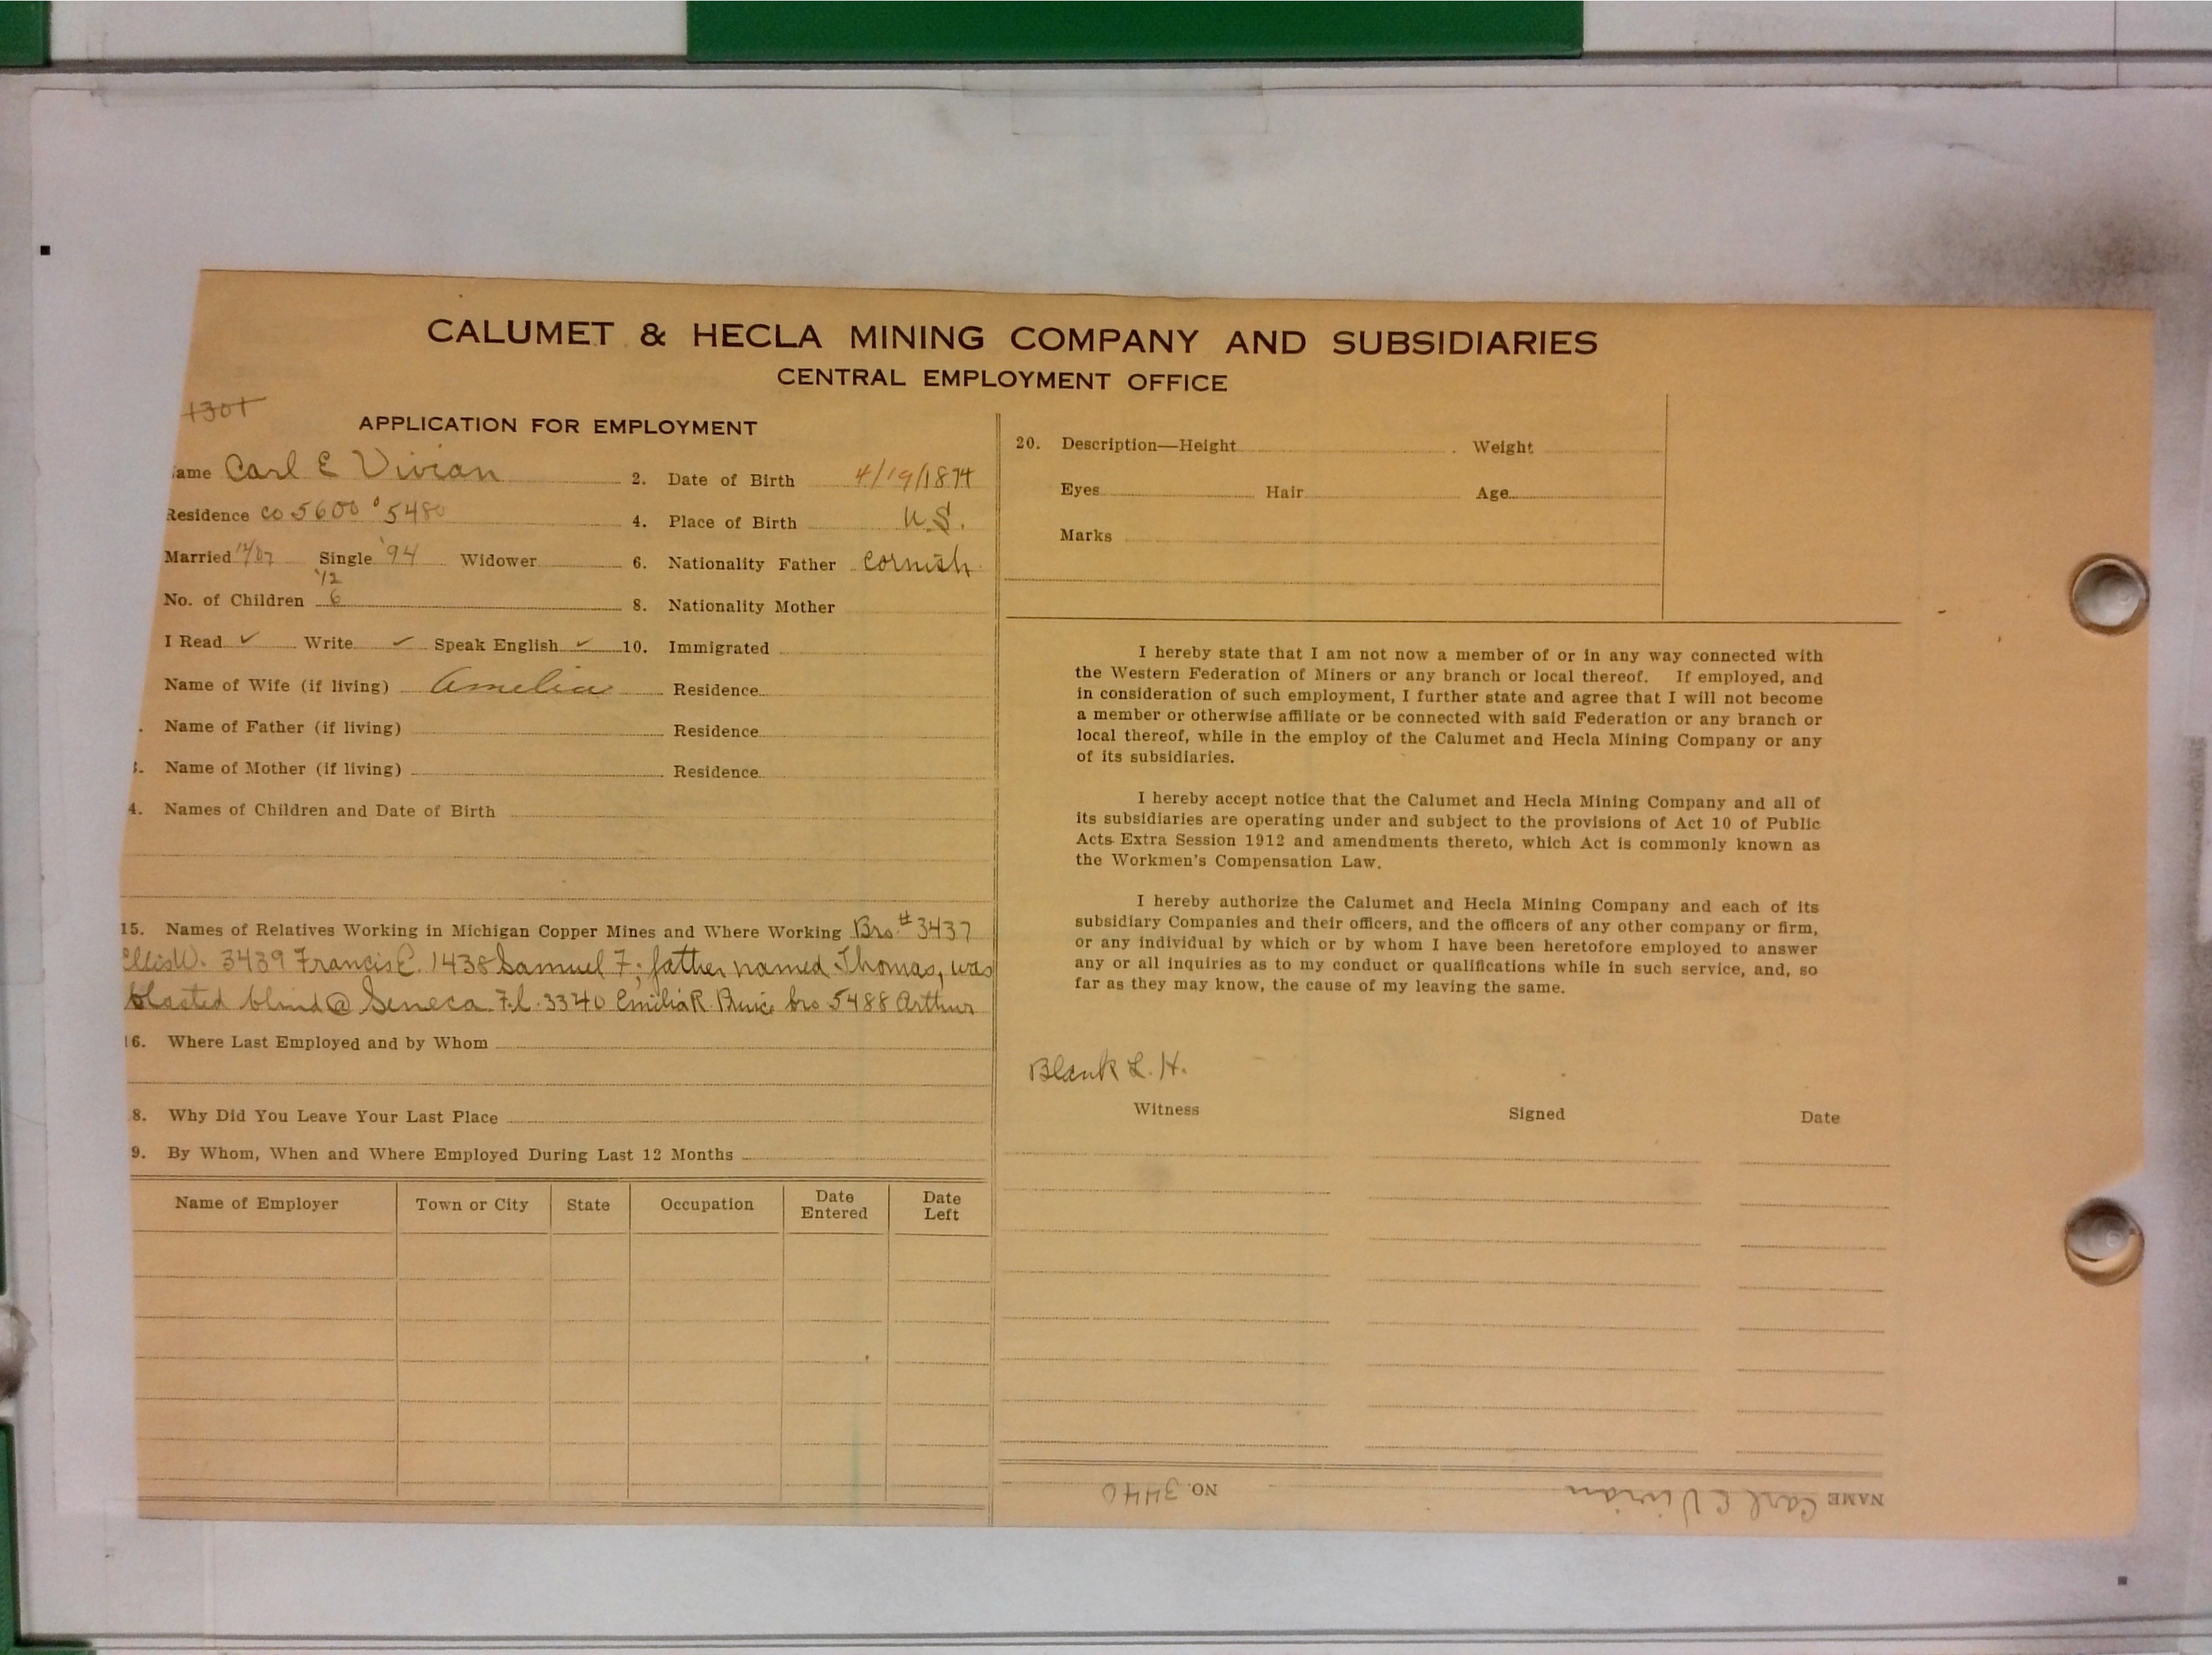 CALUMET & HECLA MINING COMPANY AND SUBSIDIARIES
CENTRAL EMPLOYMENT OFFICE
APPLICATION FOR EMPLOYMENT
ame Carl E Vivian 2. Date of Birth 4/19/1874
Residence CO 5600 5480 4. Place of Birth U.S.
Married 12/07 Single '94 Widower 6. Nationality Father Cornish
'12
No. of Children 6 8. Nationality Mother
I Read ✓ Write ✓ Speak English ✓ 10. Immigrated
Name of Wife (if living) Amelia Residence
Name of Father (if living) Residence
Name of Mother (if living) Residence
4. Names of Children and Date of Birth
15. Names of Relatives Working in Michigan Copper Mines and Where Working Bro. #3437
Ellis W. 3439 Francis E. 1438 Samuel F; father named Thomas, was
blasted blind @ Seneca. F.l. 3340 Emilia R. bro 5488 Arthur
16. Where Last Employed and by Whom
8. Why Did You Leave Your Last Place
9. By Whom, When and Where Employed During Last 12 Months
Name of Employer Town or City State Occupation Date Entered Date Left
20. Description—Height Weight
Eyes Hair Age
Marks
I hereby state that I am not now a member of or in any way connected with
the Western Federation of Miners or any branch or local thereof. If employed, and
in consideration of such employment, I further state and agree that I will not become
a member or otherwise affiliate or be connected with said Federation or any branch or
local thereof, while in the employ of the Calumet and Hecla Mining Company or any
of its subsidiaries.
I hereby accept notice that the Calumet and Hecla Mining Company and all of
its subsidiaries are operating under and subject to the provisions of Act 10 of Public
Acts Extra Session 1912 and amendments thereto, which Act is commonly known as
the Workmen's Compensation Law.
I hereby authorize the Calumet and Hecla Mining Company and each of its
subsidiary Companies and their officers, and the officers of any other company or firm,
or any individual by which or by whom I have been heretofore employed to answer
any or all inquiries as to my conduct or qualifications while in such service, and, so
far as they may know, the cause of my leaving the same.
Blank L.H.
Witness Signed Date
NAME Carl E Vivian NO. 3440